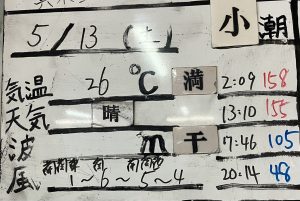 小潮
5/13 (土)
気温 26 ℃ 満 2:09 158
天気 晴 13:10 155
波 m 干 7:46 105
風 1～6～5～4 20:14 48